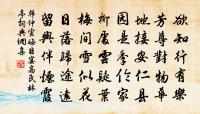 欲知行有樂
芳尊對物華
地接安仁縣
園是季倫家
柳處雲疑葉
梅間雪似花
日落歸途遠
留興伴煙霞
韓仲宣晦日宴高氏林
亭詞典網集